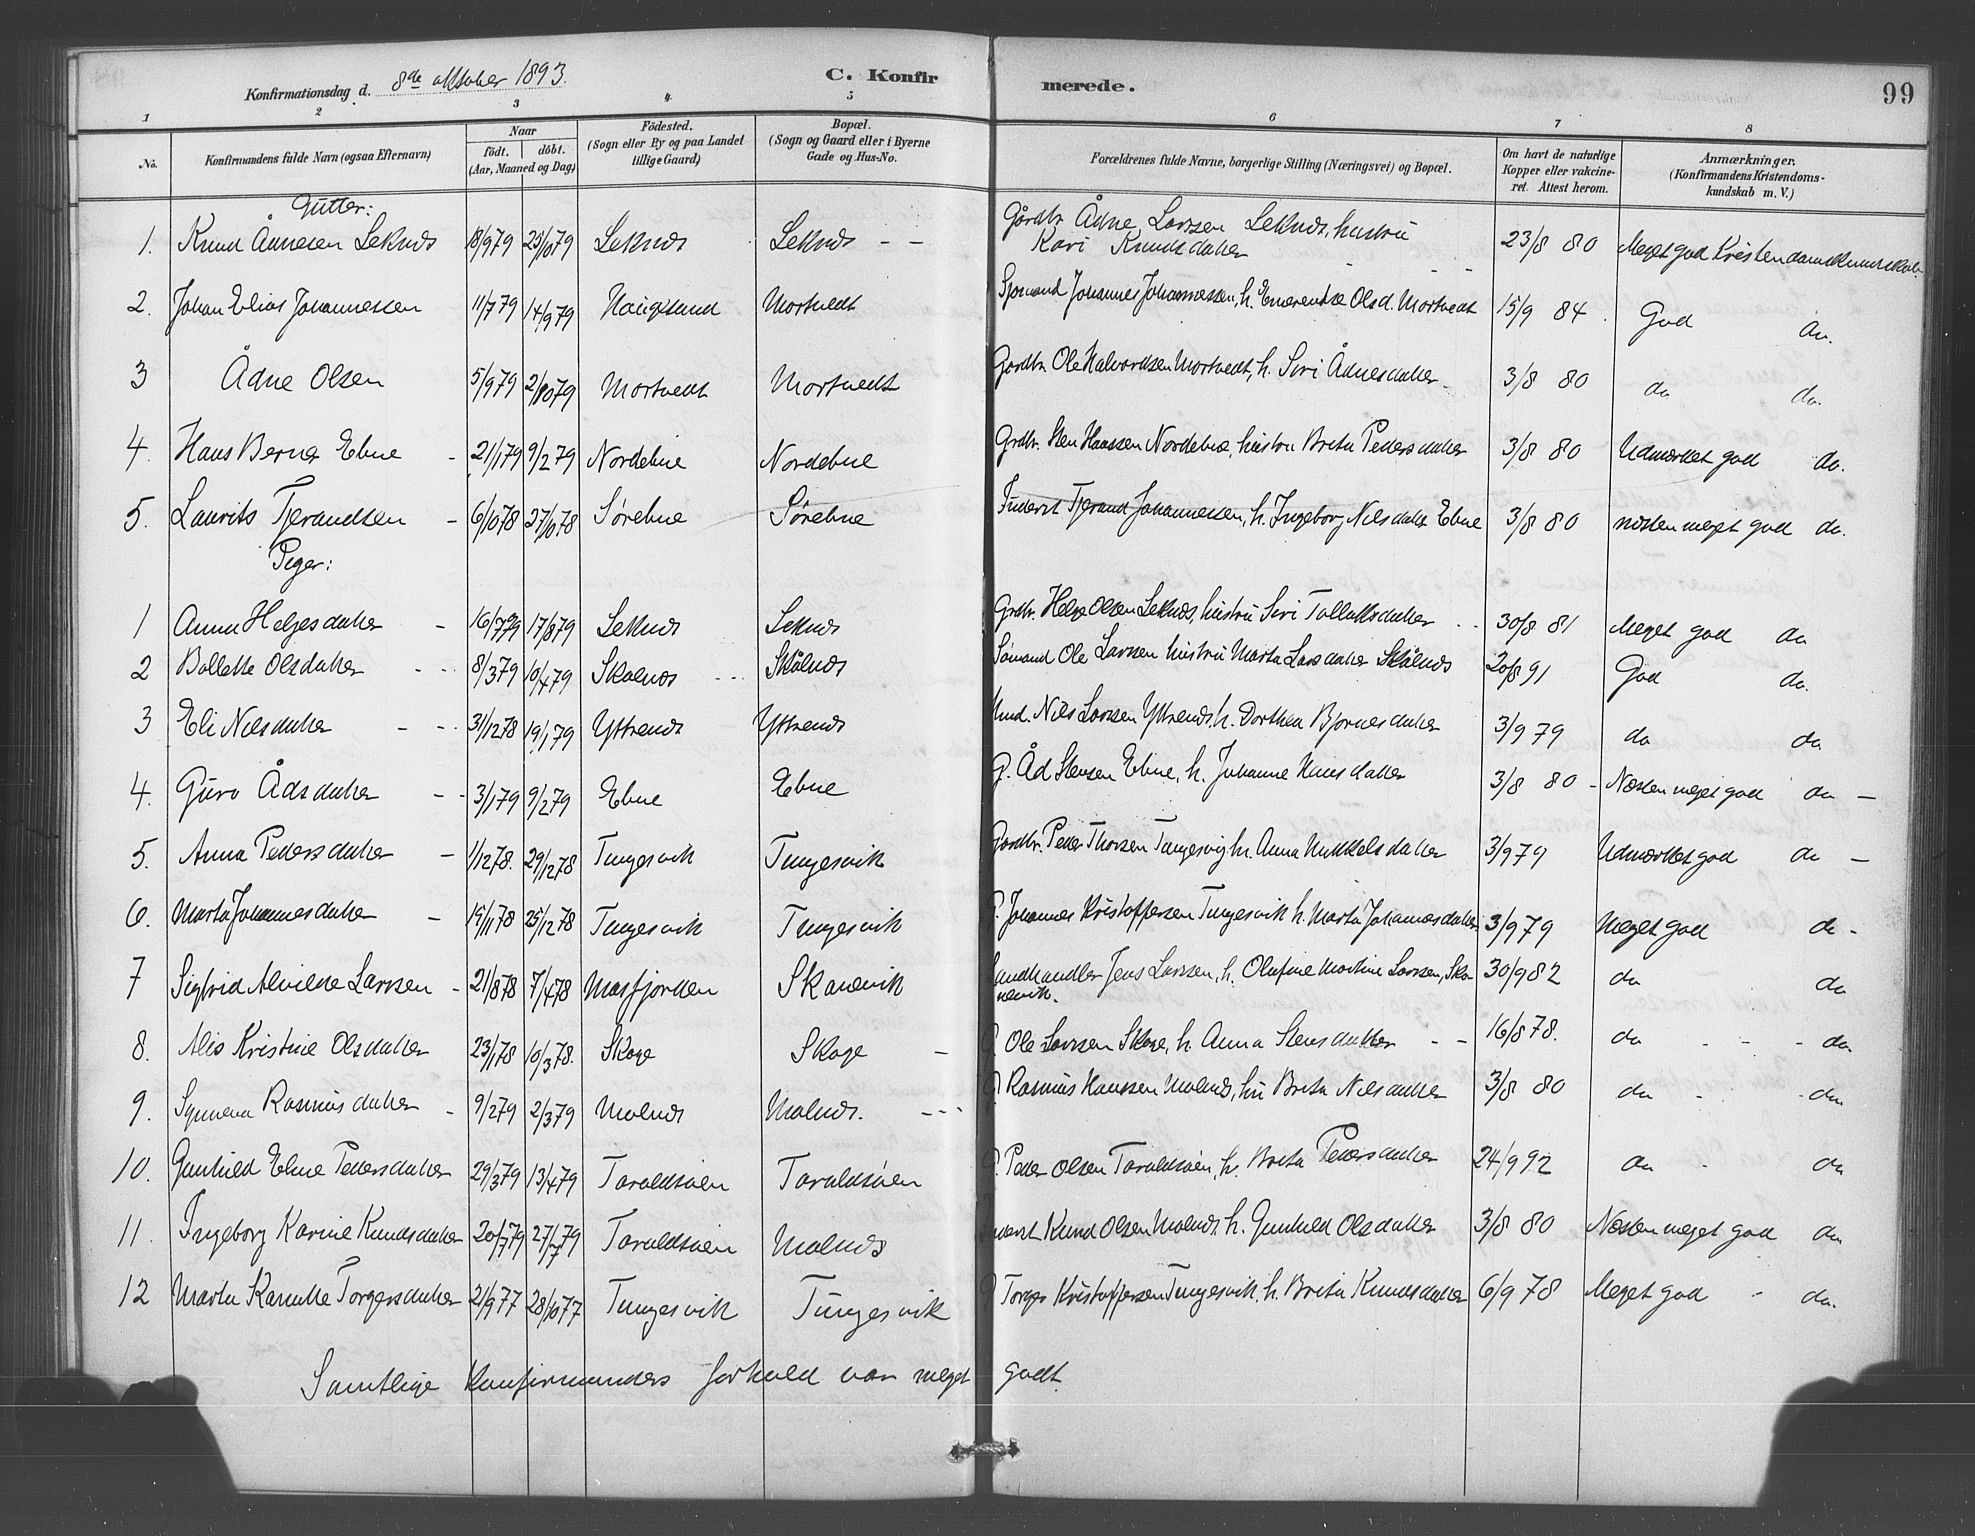 Konfirmationsdag d. 8de oktober 1893.
C. Konfirmerede.
99
1 2 3 4 5 6 7 8
No. Konfirmandens fulde Navn (ogsaa Efternavn)
Naar
født. døbt.
(Aar, Maaned og Dag)
Fødested.
(Sogn eller By og paa Landet
tillige Gaard)
Bopæl.
(Sogn og Gaard eller i Byerne
Gade og Hus-No.
Forældrenes fulde Navne, borgerlige Stilling (Næringsvei) og Bopæl.
Om havt de naturlige
Kopper eller vakcine-
ret. Attest herom.
Anmærkninger.
(Konfirmandens Kristendoms-
kundskab m. V.)
Gutter:
1. Knud Ånnesen Leknes 18/9 79 25/10 79 Leknes Leknes - - Gårdbr. Ådne Larssen Leknes, hustru Kari Knudsdatter 23/8 80 Meget god Kristendomskundskab
2. Johan Elias Johannessen 11/7 79 14/9 79 Haugesund Mortvedt Sjømand Johannes Johannessen, h. Olsd. Mortvedt 15/9 84. God do.
3 Ådne Olsen 5/9 79 2/10 79 Mortvedt Mortvedt Gardbr. Ole Halvordsen Mortvedt, h. Siri Ådnesdatter 3/8 80 do do.
4. Hans Berner Ebne - 21/1 79 9/2 79 Nordebne Nordebne Grdbr. Sten Hanssen Nordebne, hustru Brita Pedersdatter 3/8 80 Udmerket god do.
5. Laurits Tjerandsen - 6/10 78 27/10 78 Sørebne Sørebne Tjerand Johannessen, h. Ingeborg Nilsdatter Ebne 3/8 80 næsten meget god do.
Piger:
1 Anna Helgesdatter - 16/7 79 17/8 79 Leknes Leknes Grdbr. Helge Olsen Leknes, hustru Siri Tollaksdatter 30/8 81 Meget god do
2 Bollette Olsdatter - - 8/3 79 10/4 79 Skålnes Skålnes Sømand Ole Larssen hustru Marta Larsdatter Skålnes 20/8 91 God do.
3 Eli Nilsdatter - - 31/12 78 19/1 79 Yttrenes Yttrenes Nils Larssen Yttrenes, h. Dorthea Bjørnesdatter 3/9 79 do do
4. Guro Ådsdatter - - 3/1 79 9/2 79 Ebne Ebne G. Åd Stensen Ebne, h. Johanne Hansdatter 3/8 80 - Næsten meget god do -
5. Anna Pedersdatter - 1/12 78. 29/12 78 Tungesvik Tungesvik Gardbr. Peder Thorsen Tungesvig h. Anna Mikkelsdatter 3/9 79 Udmerket god do -
6. Marta Johannesdatter - 15/11 78 25/12 78 Tungesvik Tungesvik Johannes Kristoffersen Tungesvik h. Marta Johannesdatter 3/9 79 Meget god do -
7 Sigfrid Alvilde Larssen - 21/8 78 7/4 78 Masfjorden Skånevik Landhandler Jens Larssen, h. Olufine Martine Larssen, Skånevik. 30/9 82 do do
8. Alis Kristine Olsdatter 23/1 78 10/3 78. Skoge Skoge - Ole Larssen Skoge, h. Anna Stensdatter - - 16/8 78. do - - - do
9. Synneva Rasmusdatter - 9/2 79 2/3 79 Molnes Molnes. - - - Rasmus Hanssen Molnes, hu Brita Nilsdatter 3/8 80 do - - do
10. Gunhild Ebne Pedersdatter 29/3 79 13/4 79 Taraldsøien Taraldsøien Peder Olsen Taraldsøien, h. Brita Pedersdatter 24/9 92 do - do
11. Ingeborg Karine Knudsdatter 20/7 79 27/7 79 Taraldsøien Molnes Knud Olsen Molnes. h. Gunhild Olsdatter 3/8 80 Næsten meget god do
12 Marta Kamilla Torgersdatter 21/9 77 28/10 77 Tungesvik Tungesvik Torger Kristoffersen Tungesvik. h. Brita Knudsdatter 6/9 78 Meget god - do.
Samtlige Konfirmanders forhold var meget godt.